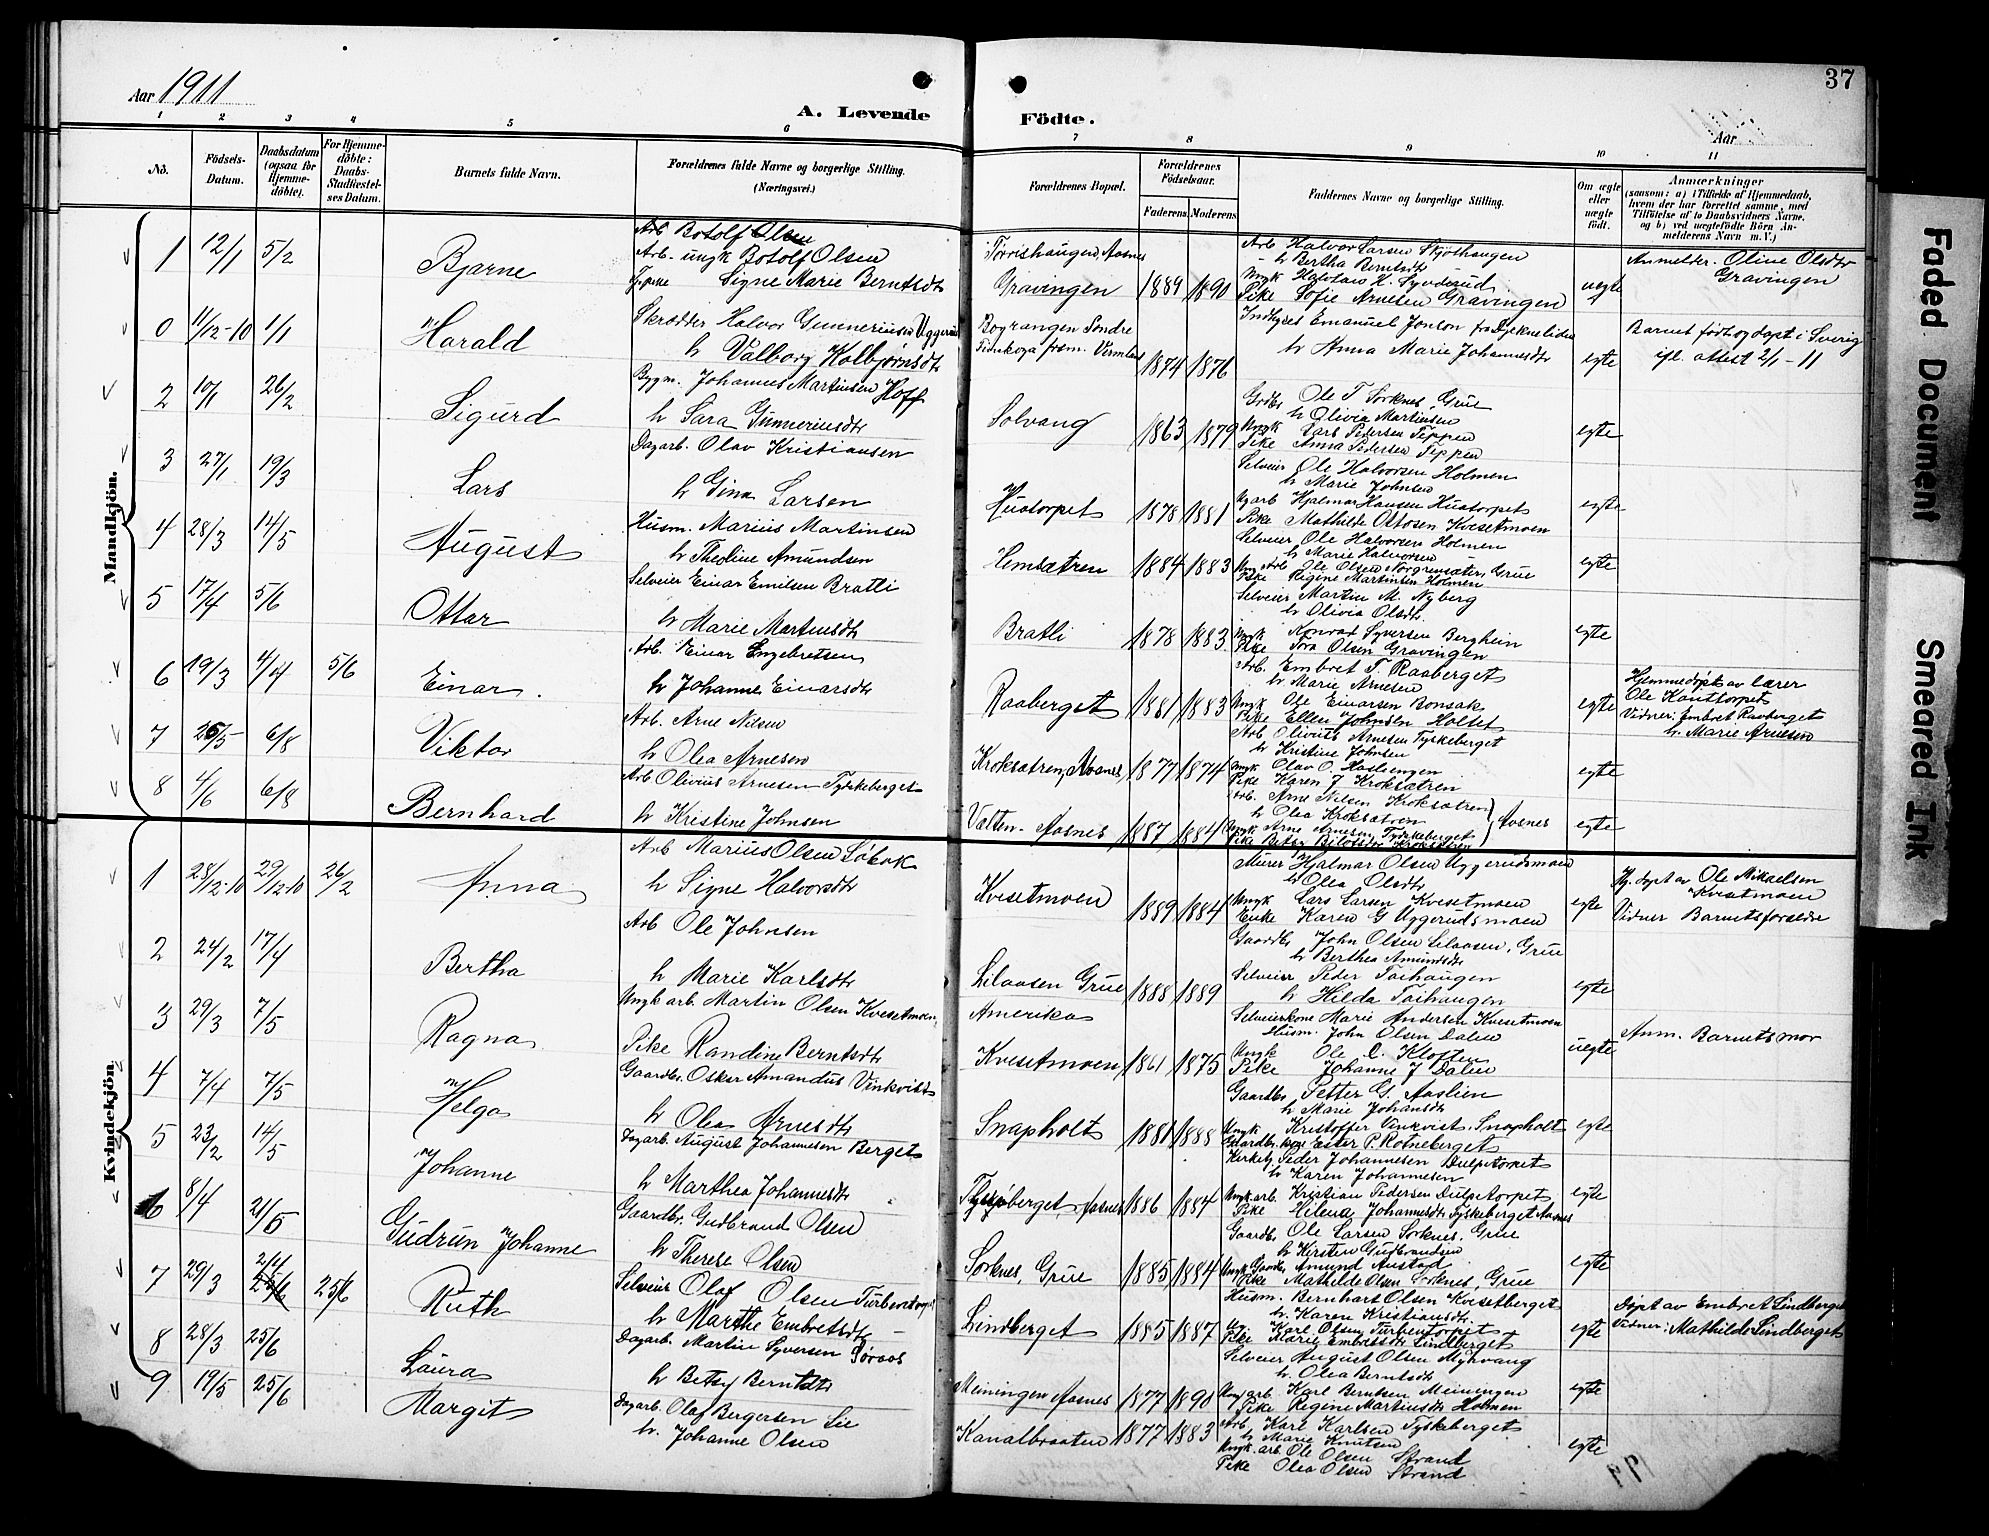 Aar 1911
A. Levende
Födte.
Aar
37
1 2 3 4 5 6 7 8 9 10 11
No.
Födsels-Datum.
Daabsdatum (ogsaa for Hjemme-döbte).
For Hjemme-döbte: Daabs-Stadfæstel-ses Datum.
Barnets fulde Navn.
Forældrenes fulde Navne og borgerlige Stilling. (Næringsvei.)
Forældrenes Bopæl.
Forældrenes Födselsaar.
Faderens Moderens
Faddernes Navne og borgerlige Stilling.
Om ægte eller uægte födt.
Anmærkninger
(saasom: a) i Tilfælde af Hjemmedaab,
hvem der har forrettet samme, med
Tilföielse af to Daabsvidners Navne.
og b) ved uægtefödte Börn An-
melderens Navn m. V.)
Mandkjön.
1 12/1 5/2 Bjarne
Arb Botolf Olsen
Arb. ungk Botolf Olsen
Signe Marie Berntsdtr
Gravingen 1889 1890
Arb Halvor Larsen Skjøthaugen
h Bertha Berntsdtr
Pike Sofie Arnesen Gravingen
uegte
Anmelder. Oline Olsdtr
Gravingen
0 11/12-10 1/1 Harald
Skrædder Halvor Gunneriusen Uggerud
h Valborg Kolbjørnsdtr
Bograngen Søndre
1874 1876
h Anna Marie Johannesdtr
egte
Barnet født og døpt i Sverig
ifl. attest 2/1-11
2 10/1 26/2 Sigurd
Bygm. Johannes Martinsen Hoff
h Sara Gunneriusdtr
Solvang 1863 1879
Grdbr Ole T Sorknes, Grue
h Olivia Martinsen
Ungk Lars Pedersen Teppen
Pike Anna Pedersen Teppen
egte
3 27/1 19/3 Lars
Dagarb. Olav Kristiansen
h Gina Larsen
Huatorpet 1878 1881
Selveier Ole Halvorsen Holmen
h Marie Johnsen
Ug arb Hjalmar Hansen Huatorpet
Pike Mathilde Ottosen Kvesetmoen
egte
4 28/3 14/5 August
Husm. Marius Martinsen
h Theoline Amundsen
Hemsætren 1884 1883
Selveier Ole Halvorsen Holmen
h Marie Halvorsen
Pike Regine Martinsen Holmen
egte
5 17/4 5/6 Ottar
Selveier Einar Emilsen Bratli
h Marie Martinsdtr
Bratli 1878 1883
Selveier Martin M. Nyberg
h Olivia Olsdtr.
Ungk Konrad Syversen Bergheim
Pike Tora Olsen Gravingen
egte
6 19/3 4/4 5/6 Einar.
Arb. Einar Engebretsen
h Johanne Einarsdtr
Raaberget 1881 1883
Arb. Embret T. Raaberget
h Marie Arnesen
Ungk Ole Einarsen Bonsak
Pike Ellen Johnsen Holtet
egte
Hjemmedøpt av lærer
Ole Kauttorpet
Vidner: Embret Raaberget
h. Marie Arnesen
7 26/5 6/8 Viktor
Arb. Arne Nilsen
h Olea Arnesen
Kroksætren, Aasnes 1877 1874
Arb Olivius Arnesen Tyskeberget
h Kristine Johnsen
Ungk Olav O. Haslengen
Pike Karen J Kroksætren
egte
8 4/6 6/8 Bernhard
Arb Olivius Arnesen Tyskeberget
h Kristine Johnsen
Valten. Aasnes 1887 1884
Arb. Arne Nilsen Kroksætren
h Olea Kroksætren
Ungk Arne Arnesen Tyskeberget
Aasnes
egte
Kvindekjön.
1 28/12-10 29/12-10 26/2 Anna
Arb Marius Olsen Løbak
h Signe Halvorsdtr
Kvesetmoen 1889 1884
Murer Hjalmar Olsen Uggerudsmoen
h Olea Olsdtr
Ungk Lars Larsen Kvesetmoen
Enke Karen G Uggerudsmoen
egte
Hj. døpt av Ole Mikaelsen
Kvesetmoen
Vidner Barnets forældre
2 24/2 17/4 Bertha
Arb Ole Johnsen
h Marie Karlsdtr
Lilaasen Grue 1888 1889
Gaardbr John Olsen Lilaasen, Grue
h Berthea Amundsdtr
Selveier Peder Taihaugen
h Hilda Taihaugen
egte
3 29/3 7/5 Ragna
Ungk arb. Martin Olsen Kvesetmoen
Pike Randine Berntsdtr
Amerika
Kvesetmoen 1861 1875
Selveierkone Marie Andersen Kvesetmoen
Husm. John Olsen Dalen
Ungk Ole O. Kloften
Pike Johanne J Dalen
uegte
Anm. Barnets mor
4 7/4 7/5 Helga
Gaardbr. Oskar Amandus Vinkvist
h Olea Arnesdtr
Snapholt 1881 1888
Gaardbr Petter G. Aaslien
h Marie Johansdtr
Ungk Kristoffer Vinkvist, Snapholt
Ester P. Rotneberget
egte
5 23/2 14/5 Johanne
Dagarb. August Johannesen Berget
h Marthea Johannesdtr
Tyskeberget, Aasnes 1886 1884
Peder Johannesen Dulpetorpet
h Karen Johannesen
Ungk. arb. Kristian Pedersen Dulpetorpet
Pike Helena Johannesdtr Tyskeberget Aasnes
egte
6 8/4 21/5 Gudrun Johanne
Gaardbr. Gudbrand Olsen
h Therese Olsen
Sorknes, Grue 1885 1884
Gaardbr Ole Larsen Sorknes, Grue
h Kirsten Gudbrandsen
Amund Austad
Pike Mathilde Olsen Sorknes, Grue
egte
7 29/3 25/6 Ruth
Selveier Olaf Olsen Turbentorpet
h Marthe Embretsdtr
Lindberget 1885 1887
Husm. Bernhart Olsen Kvesetberget
h. Karen Kristiansdtr.
Ug. Karl Olsen Turbentorpet
Pike Marie Embretsdtr Lindberget
egte
Døpt av Embret Lindberget
Vidner: Mathilde Lindberget
8 28/3 25/6 Laura
Dagarb. Martin Syversen Søraas
h Betsy Berntsdtr
Meiningen Aasnes 1877 1890
Selveier August Olsen Myrvang
h. Olea Berntsdtr
Ungk arb. Karl Berntsen Meiningen
Pike Regine Martinsdtr Holmen
egte
9 19/5 25/6 Margit
Dagarb. Olaf Bergersen Lie
h. Johanne Olsen
Kanalbraaten 1877 1883
Arb. Karl Karlsen Tyskeberget
h Marie Knutsen
Ungk. arb. Ole Olsen Strand
Pike Olea Olsen Strand
egte
Faded Document
Smeared Ink